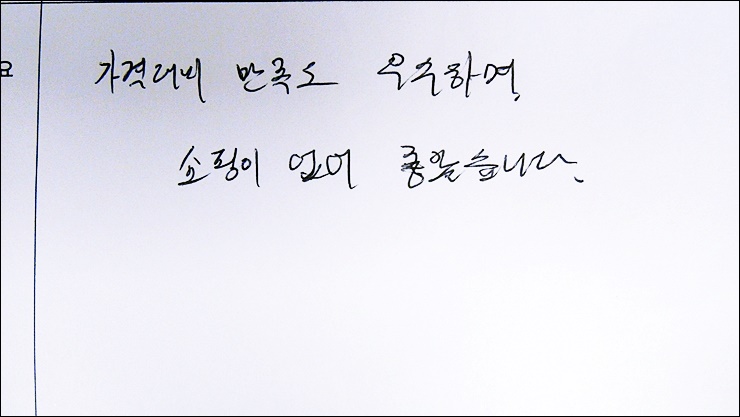 요
가격대비 만족도 우수하며,
쇼핑이 없어 좋았습니다.